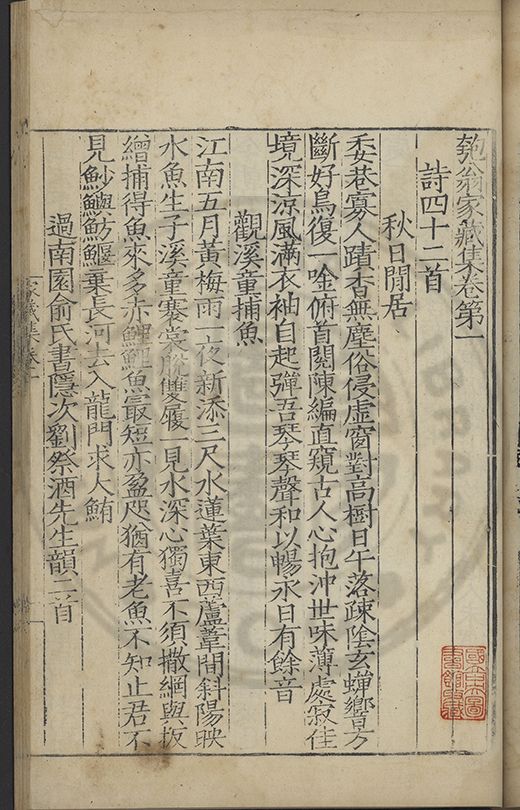 匏翁家藏集卷第一
詩四十二首
秋日閒居
委巷寡人蹟杳無塵俗侵虛窗對高樹日午落疎陰玄蟬響方
斷好鳥復一吟俯首閱陳編直窺古人心抱沖世味薄處寂佳
境深涼風滿衣袖自起彈吾琴琴聲和以暢永日有餘音
觀溪童捕魚
江南五月黃梅雨一夜新添三尺水蓮葉東西蘆葦間斜陽映
水魚生子溪童褰裳脫雙屨一見水深心獨喜不須撒網與扳
繒捕得魚來多赤鯉鯉魚最短亦盈咫猶有老魚不知止君不
見魦鱮魴鰋棄長河去入龍門求大鮪
過南園俞氏書隱次劉祭酒先生韻二首
家藏集卷一